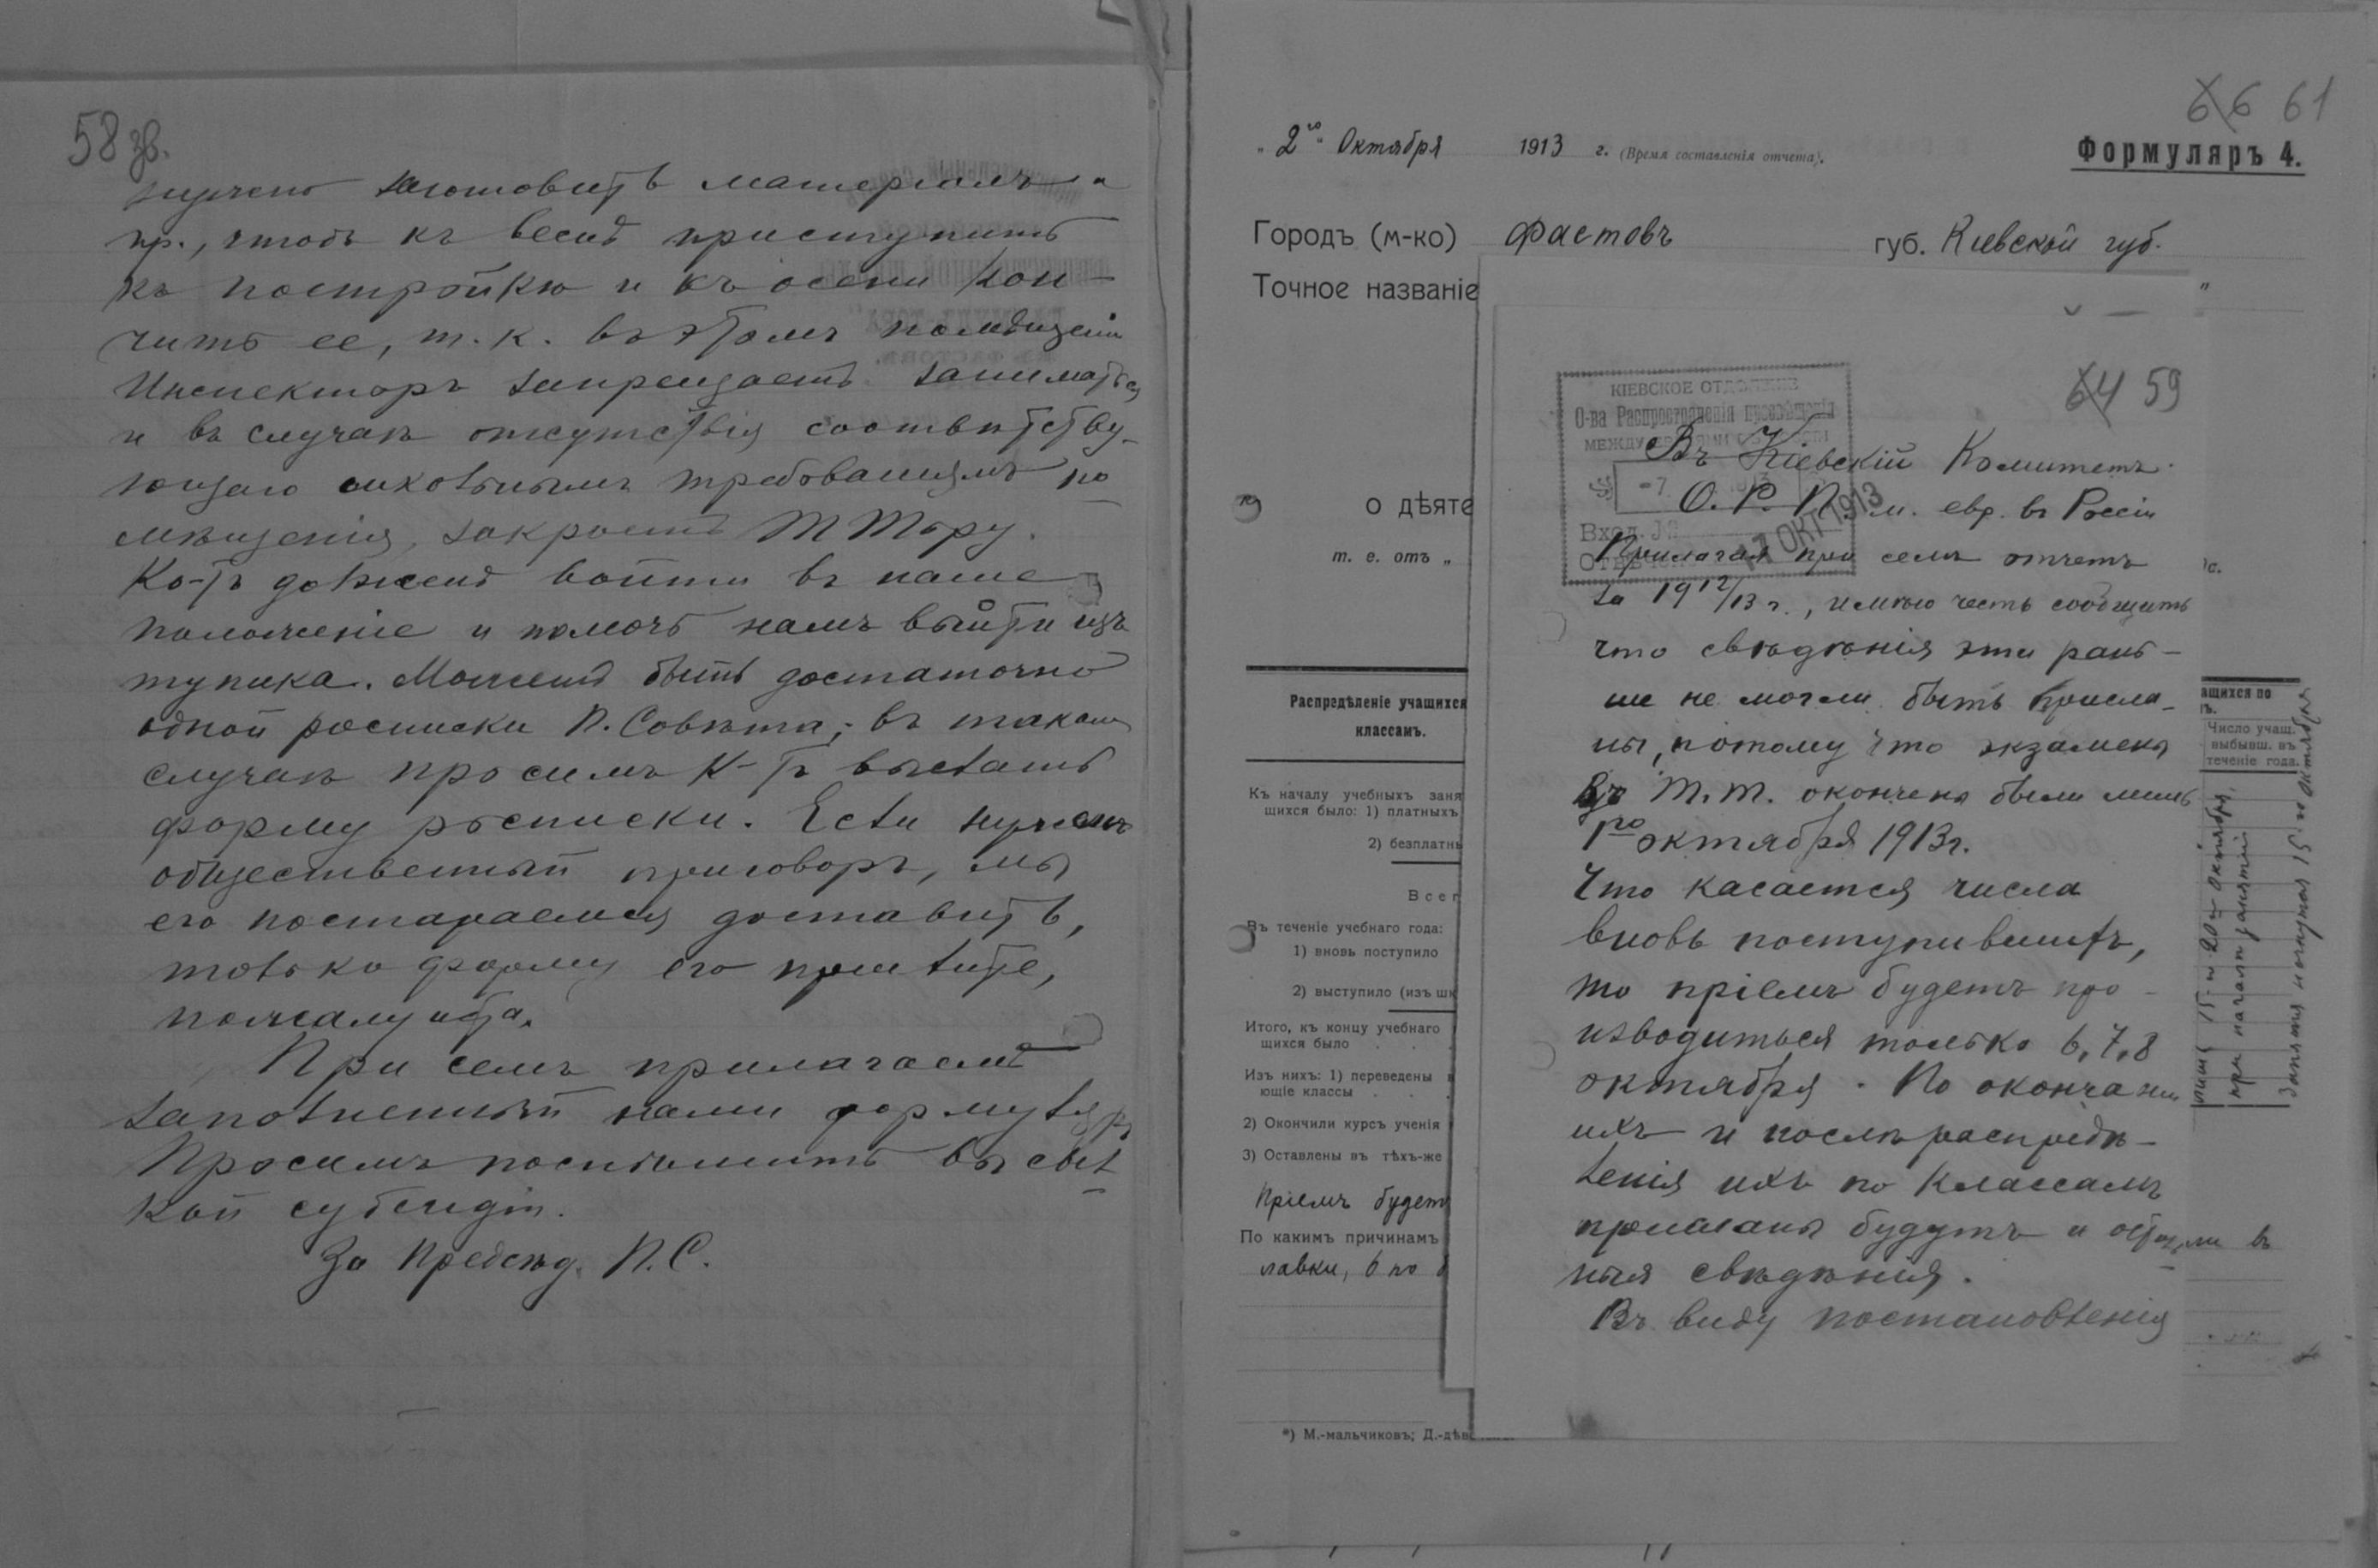 58 зв.
нужно заготовить матерьялъ и
пр., чтобъ къ веснѣ приступить
къ постройкѣ и къ осени кон-
чить ее, т. к. въ этомъ помѣщеніи
Инспекторъ запрещаетъ заниматься
и въ случаѣ отсутствія соотвѣтству-
ющаго школьнымъ требованіямъ по-
мѣщенія, закроетъ Т Тору.
Ко-тъ долженъ войти въ наше
положеніе и помочь намъ выйти изъ
тупика. Можетъ быть достаточно
одной росписки П. Совѣта; въ такомъ
случаѣ просимъ К-тъ выслать
форму росписки. Если нуженъ
общественный приговоръ, мы
его постараемся доставить,
только форму его пришлите,
пожалуйста.
При семъ прилагаемъ
заполненный нами формуляръ
Просимъ поспѣшить высыл-
кой субсидіи.
За Предсѣд. П. С.
66 61
„2го“ Октября 1913 г. (Время составленія отчета).
Формуляръ 4.
Городъ (м-ко) Фастовъ губ. Кіевской губ.
Точное названіе
о дѣяте
т. е. отъ „
Распредѣленіе учащихся
классамъ.
Къ началу учебныхъ заня
щихся было: 1) платныхъ
2) безплатнь
Всег
Въ теченіе учебнаго года:
1) вновь поступило
2) выступило (изъ шк
Итого, къ концу учебнаго
щихся было . . .
Изъ нихъ: 1) переведены в
ющіе классы . . .
2) Окончили курсъ ученія
3) Оставлены въ тѣхъ-же
Пріемъ будетъ
По какимъ причинамъ
лавки, 6 по
*) М.-мальчиковъ; Д.-дѣв
64 59
КІЕВСКОЕ ОТДѢЛЕНІЕ
О-ва Распространенія просвѣщенія
МЕЖДУ ЕВРЕЯМИ ВЪ РОССІИ
-7 1913
Вход. №
17 ОКТ 1913
Въ Кіевскій Комитетъ
О. Р. П. м. евр. въ Россіи
Прилагая при семъ отчетъ
за 1912/13 г., имѣю честь сообщить
что свѣдѣнія эти рань-
ше не могли быть присла-
ны, потому что экзамены
въ Т. Т. окончены были лишь
1го октября 1913 г.
Что касается числа
вновь поступившихъ,
то пріемъ будетъ про-
изводиться только 6, 7, 8
октября. По окончаніи
ихъ и послѣ распредѣ-
ленія ихъ по классамъ
присланы будутъ и осталь-
ныя свѣдѣнія.
Въ виду постановленія
ащихся по
Число учащ.
выбывш. въ
теченіе года.
лишь 15-20 октября,
при началѣ занятій
Занятія начнутся 15-го октября